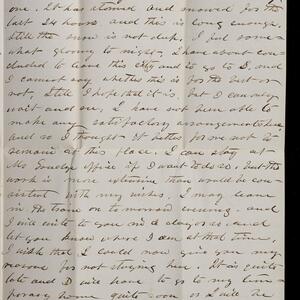 one. It has stormed and snowed for the
last 24 hours, and this is long enough.
Still the snow is not deep, I feel some
what gloomy to night, I have about con-
cluded to leave this City and to go to D. and
I cannot say whether this is for the best or
not, Still I hope that it is, but I can only
wait and see, I have not been able to
make any satisfactory arrangements here
and so I thought it better for me not to
remain at this place. I can stay at
Mr office if I want to do so, but the
work is more extensive than would be con-
sistent with my wishes. I may leave
in the train on tomorrow evening. and
I will write to you in a day or so. and
let you know where I am at that time,
I wish that I could now give you my
reasons for not staying here. It is quite
late and I will have to go to my tem-
porary home quite soon or I will be